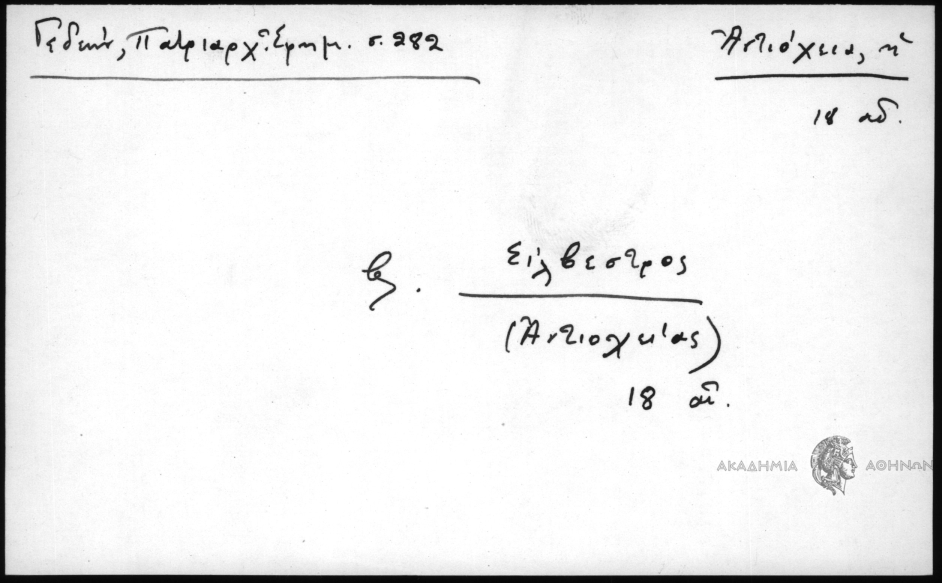 Γεδεών, Πατριαρχ. Ἐφημ. σ. 282
Ἀντιόχεια, ἡ
18 αἰ.
β. Σίλβεστρος
(Ἀντιοχείας)
18 αἰ.
ΑΚΑΔΗΜΙΑ ΑΘΗΝΩΝ